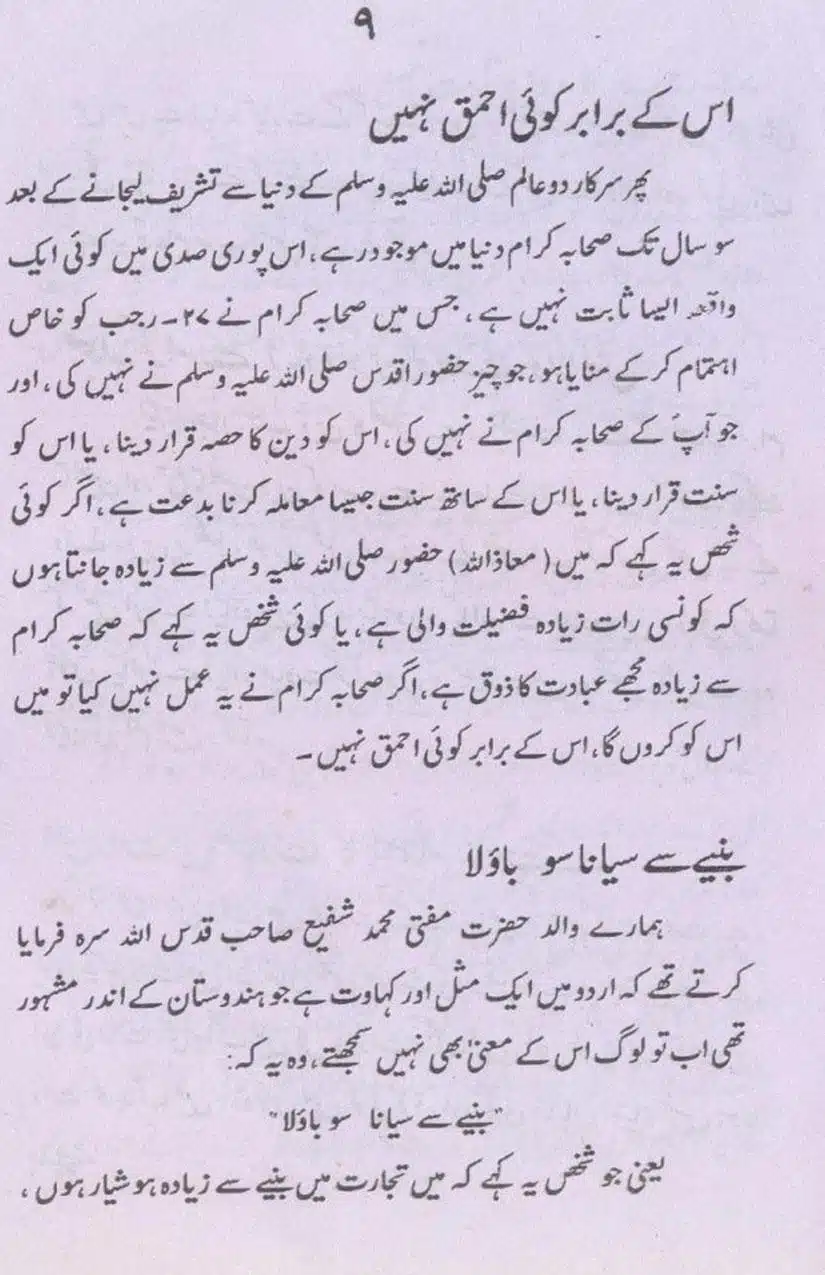 ۹
اس کے برابر کوئی احمق نہیں
پھر سرکار دو عالم صلی اللہ علیہ وسلم کے دنیا سے تشریف لیجانے کے بعد
سو سال تک صحابہ کرام دنیا میں موجود رہے، اس پوری صدی میں کوئی ایک
واقعہ ایسا ثابت نہیں ہے، جس میں صحابہ کرام نے ۲۷۔ رجب کو خاص
اہتمام کر کے منایا ہو، جو چیز حضور اقدس صلی اللہ علیہ وسلم نے نہیں کی، اور
جو آپؐ کے صحابہ کرام نے نہیں کی، اس کو دین کا حصہ قرار دینا، یا اس کو
سنت قرار دینا، یا اس کے ساتھ سنت جیسا معاملہ کرنا بدعت ہے، اگر کوئی
شخص یہ کہے کہ میں (معاذ اللہ) حضور صلی اللہ علیہ وسلم سے زیادہ جانتا ہوں
کہ کونسی رات زیادہ فضیلت والی ہے، یا کوئی شخص یہ کہے کہ صحابہ کرام
سے زیادہ مجھے عبادت کا ذوق ہے، اگر صحابہ کرام نے یہ عمل نہیں کیا تو میں
اس کو کروں گا، اس کے برابر کوئی احمق نہیں۔
بنیے سے سیانا سو باؤلا
ہمارے والد حضرت مفتی محمد شفیع صاحب قدس اللہ سرہ فرمایا
کرتے تھے کہ اردو میں ایک مثل اور کہاوت ہے جو ہندوستان کے اندر مشہور
تھی اب تو لوگ اس کے معنیٰ بھی نہیں سمجھتے، وہ یہ کہ:
"بنیے سے سیانا سو باؤلا"
یعنی جو شخص یہ کہے کہ میں تجارت میں بنیے سے زیادہ ہوشیار ہوں،